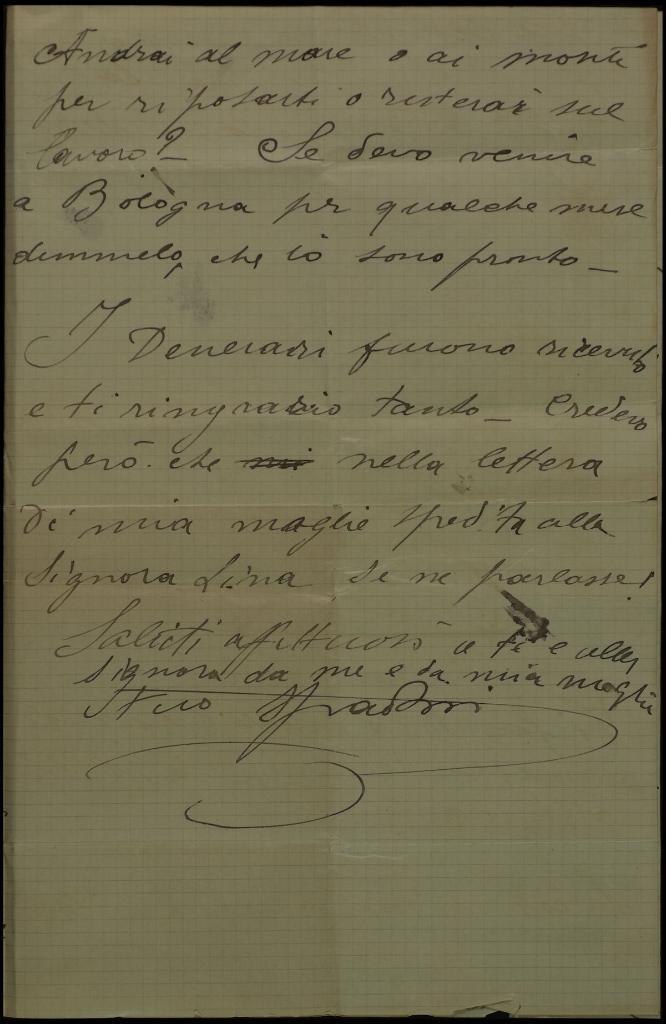 Andrai al mare o ai monti
per riposarti o resterai sul
lavoro? – Se devo venire
a Bologna pr qualche mese
dimmelo, che io sono pronto –
I Denerari furono ricevuti
e ti ringrazio tanto – Credevo
però che mi nella lettera
di mia moglie spedita alla
Signora Lina se ne parlasse!
Saluti affettuosi a te e alla
Signora da me e da mia moglie
tuo Spadoni